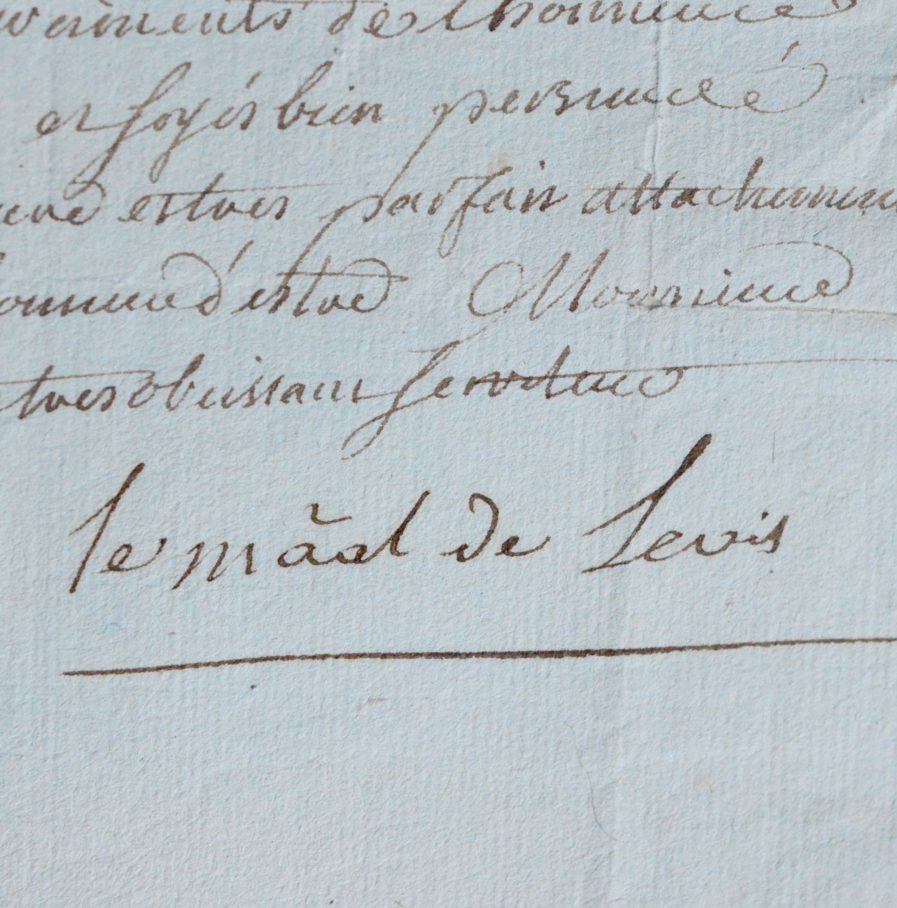 de lhonneur
et soyés bien persuadé
et tres parfait attachement
d'estre Monsieur
tres obeissant serviteur
le mãal de Levis